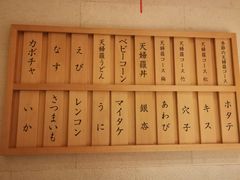 季節の天婦羅コース
天婦羅コース 松
天婦羅コース 竹
天婦羅コース 梅
天婦羅丼
ベビーコーン
天婦羅うどん
えび
なす
カボチャ
ホタテ
キス
穴子
あわび
銀杏
マイタケ
うに
レンコン
さつまいも
いか